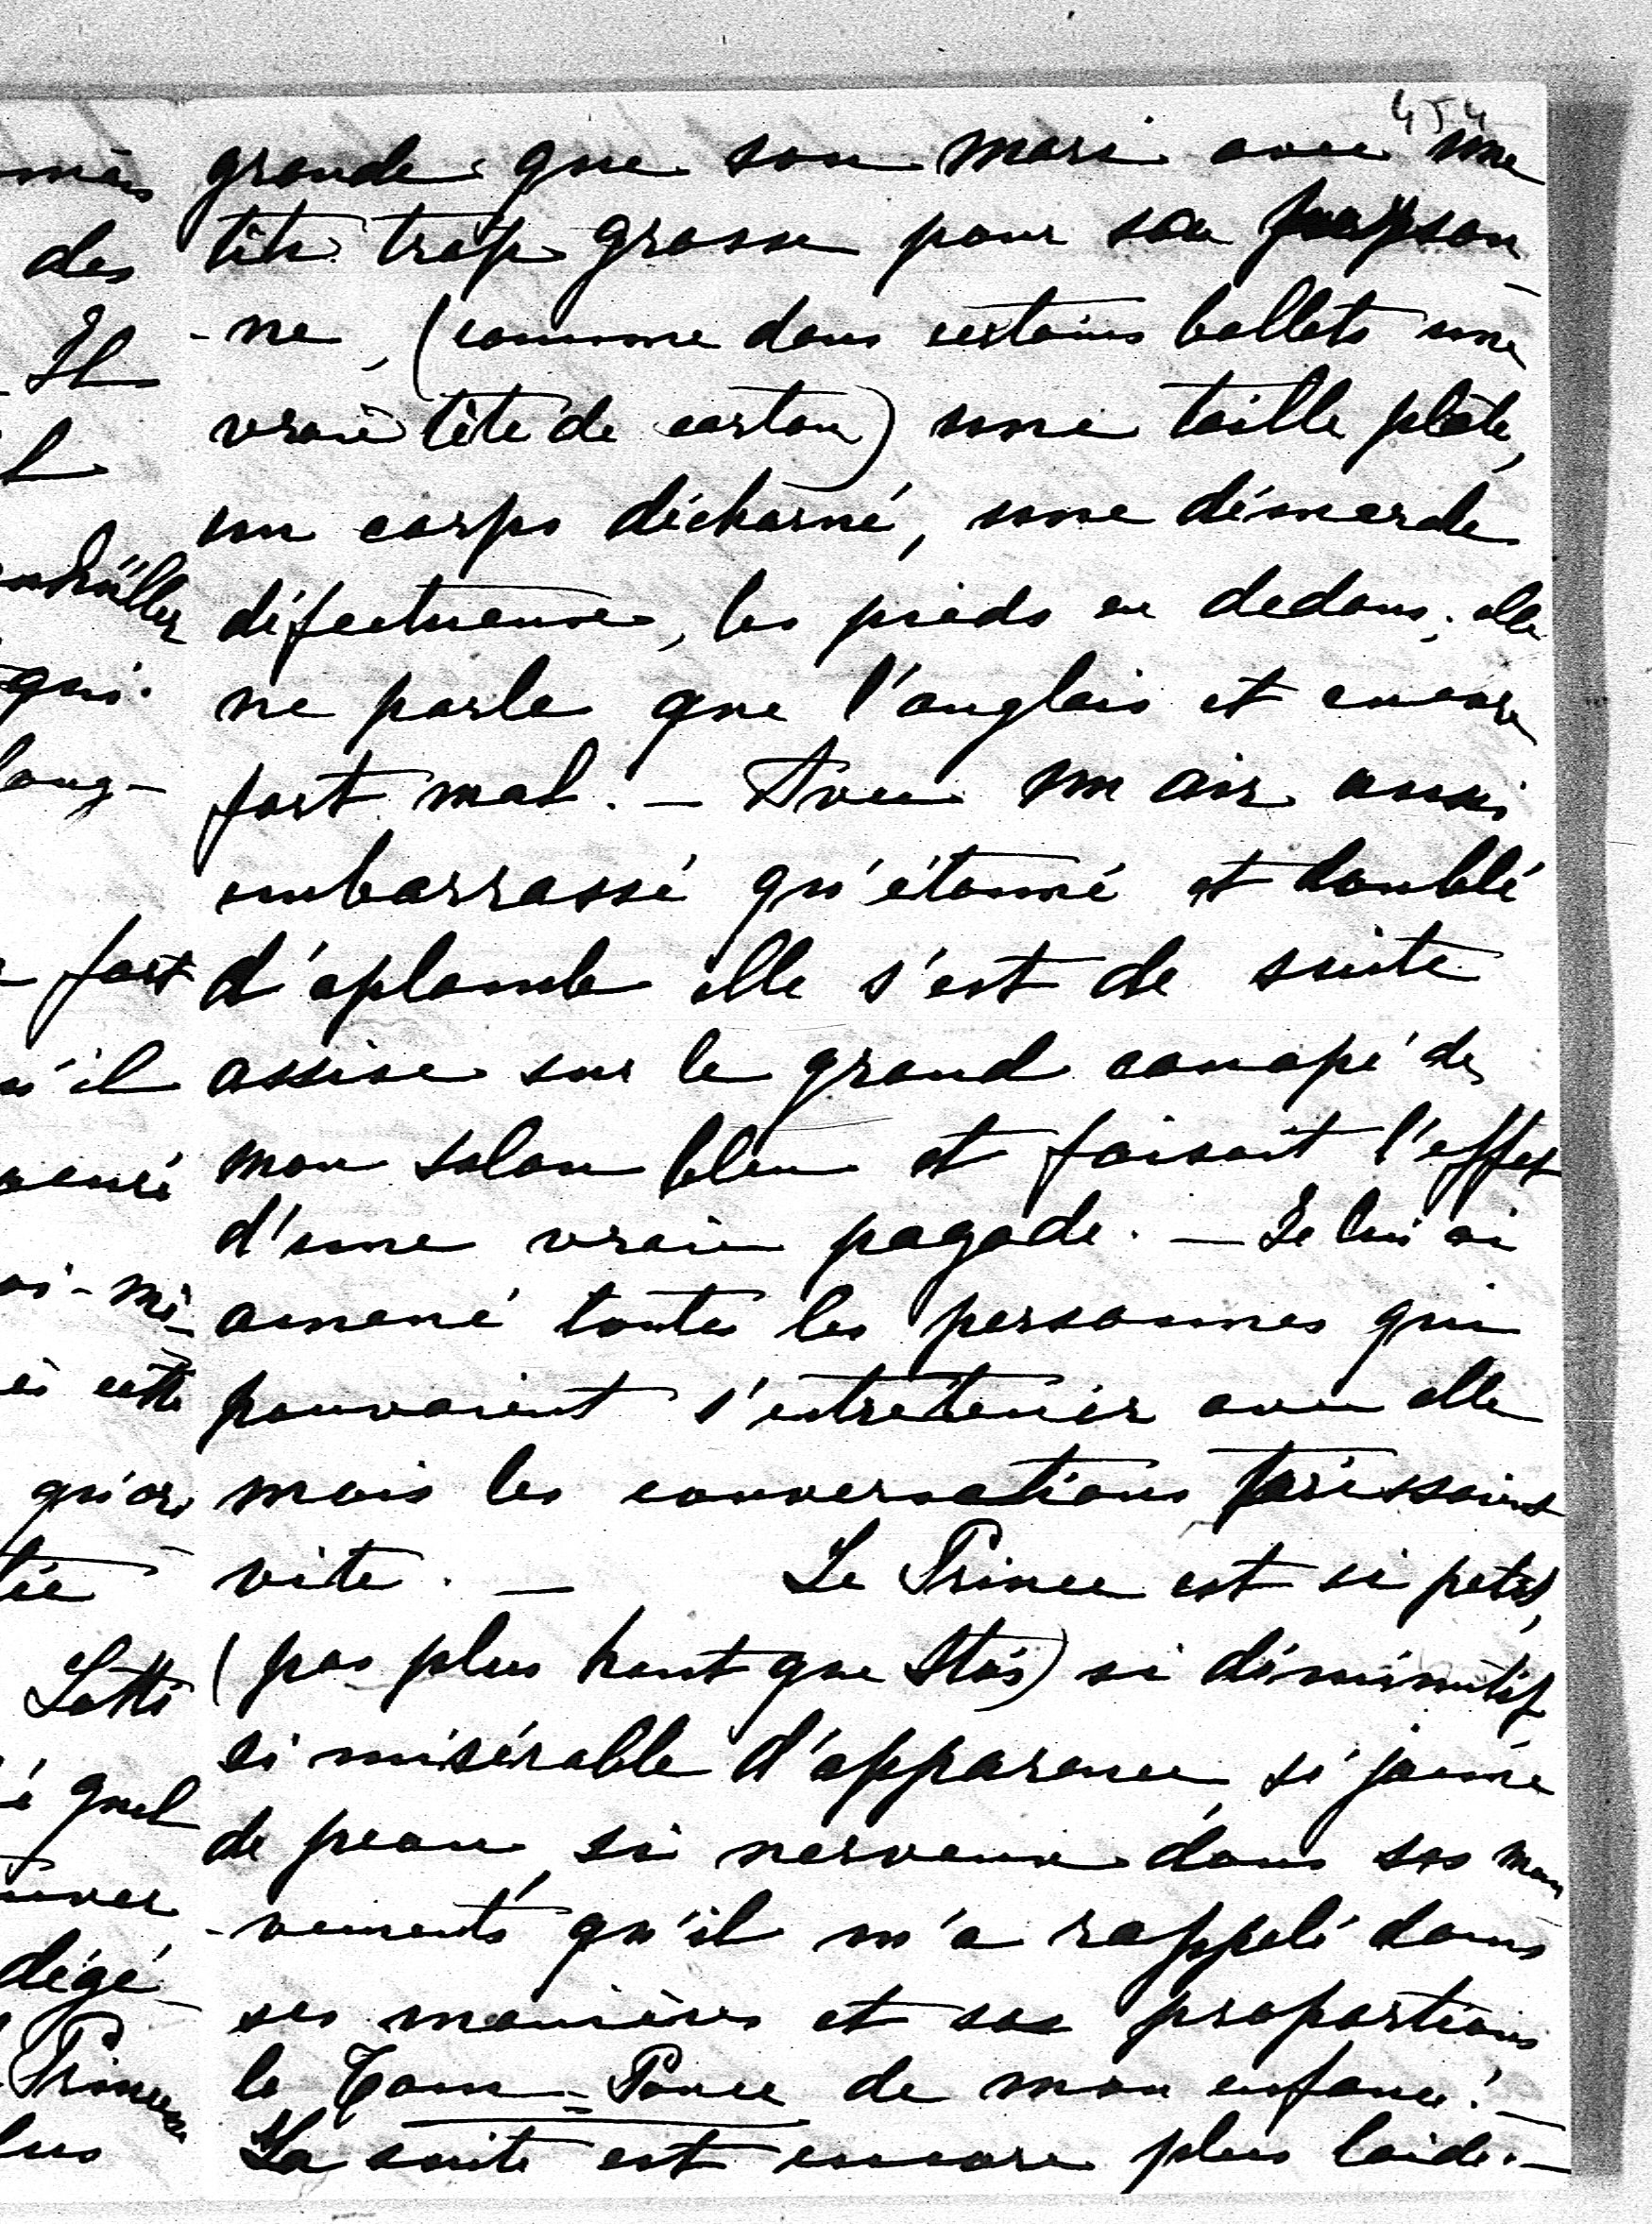 454
grande que son mari avec une
tête trop grosse pour sa person-
-ne, (comme dans certains ballets une
vraie tête de carton) une taille plate,
un corps décharné, une démarche
défectueuse, les pieds en dedans; elle
ne parle que l'anglais et encore
fort mal. — Avec un air aussi
embarrassé qu'étonné et doublé
d'aplomb elle s'est de suite
assise sur le grand canapé de
mon salon bleu et faisait l'effet
d'une vraie pagode. — Je lui ai
amené toutes les personnes qui
pouvaient s'entretenir avec elle
mais les conversations tarissaient
vite. — Le Prince est si petit,
(pas plus haut que Stás) si diminutif
si misérable d'apparence, si jaune
de peau, si nerveux dans ses mou
-vements qu'il m'a rappelé dans
ses manières et ses proportions
le Tom-Pouce de mon enfance! —
La suite est encore plus laide. —
des
Il
qui
fort
qu'il
cette
Letti
quel
dégé-